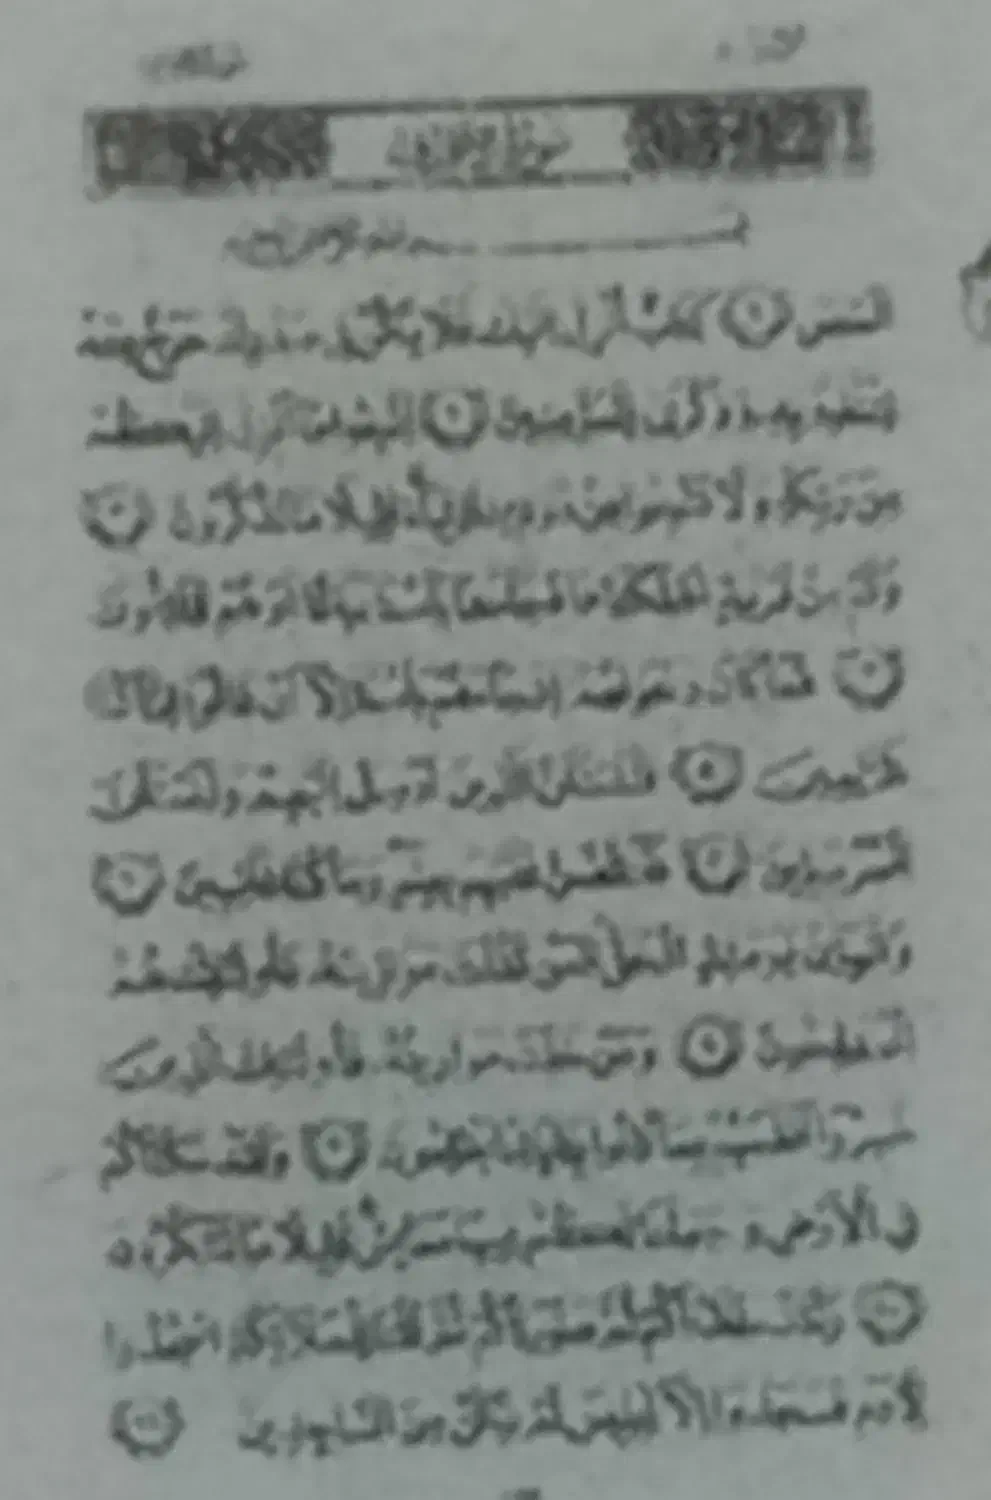 سُورَةُ الأَعْرَافِ
بِسْمِ اللَّهِ الرَّحْمَٰنِ الرَّحِيمِ
الٓمٓصٓ ١ كِتَٰبٌ أُنزِلَ إِلَيْكَ فَلَا يَكُن فِي صَدْرِكَ حَرَجٌ مِّنْهُ
لِتُنذِرَ بِهِۦ وَذِكْرَىٰ لِلْمُؤْمِنِينَ ٢ ٱتَّبِعُوا۟ مَآ أُنزِلَ إِلَيْكُم
مِّن رَّبِّكُمْ وَلَا تَتَّبِعُوا۟ مِن دُونِهِۦٓ أَوْلِيَآءَ قَلِيلًا مَّا تَذَكَّرُونَ ٣
وَكَم مِّن قَرْيَةٍ أَهْلَكْنَٰهَا فَجَآءَهَا بَأْسُنَا بَيَٰتًا أَوْ هُمْ قَآئِلُونَ
٤ فَمَا كَانَ دَعْوَىٰهُمْ إِذْ جَآءَهُم بَأْسُنَآ إِلَّآ أَن قَالُوٓا۟ إِنَّا كُنَّا
ظَٰلِمِينَ ٥ فَلَنَسْـَٔلَنَّ ٱلَّذِينَ أُرْسِلَ إِلَيْهِمْ وَلَنَسْـَٔلَنَّ
ٱلْمُرْسَلِينَ ٦ فَلَنَقُصَّنَّ عَلَيْهِم بِعِلْمٍ وَمَا كُنَّا غَآئِبِينَ ٧
وَٱلْوَزْنُ يَوْمَئِذٍ ٱلْحَقُّ فَمَن ثَقُلَتْ مَوَٰزِينُهُۥ فَأُو۟لَٰٓئِكَ هُمُ
ٱلْمُفْلِحُونَ ٨ وَمَنْ خَفَّتْ مَوَٰزِينُهُۥ فَأُو۟لَٰٓئِكَ ٱلَّذِينَ
خَسِرُوٓا۟ أَنفُسَهُم بِمَا كَانُوا۟ بِـَٔايَٰتِنَا يَظْلِمُونَ ٩ وَلَقَدْ مَكَّنَّٰكُمْ
فِي ٱلْأَرْضِ وَجَعَلْنَا لَكُمْ فِيهَا مَعَٰيِشَ قَلِيلًا مَّا تَشْكُرُونَ
١٠ وَلَقَدْ خَلَقْنَٰكُمْ ثُمَّ صَوَّرْنَٰكُمْ ثُمَّ قُلْنَا لِلْمَلَٰٓئِكَةِ ٱسْجُدُوا۟
لِـَٔادَمَ فَسَجَدُوٓا۟ إِلَّآ إِبْلِيسَ لَمْ يَكُن مِّنَ ٱلسَّٰجِدِينَ ١١